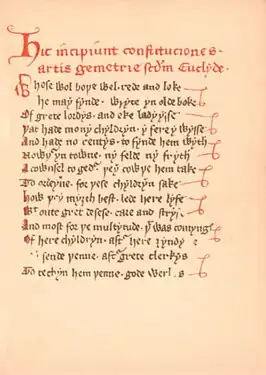 Hic incipiunt constituciones
artis gemetrie scdm Euclyde.
Whose wol bope wel rede and loke
he may fynde wryte yn olde boke
Of grete lordys and eke ladyysse
Þat had mony chyldryn y fere y wysse
And had no rentys to fynde hem wyth
Nowþ yn towne ny felde ny fryth
A cownsel to gedr þey cowþe hem take
To ordeyne for þese chyldryn sake
how þey myȝth best lede here lyfe
Wt oute gret desese care and stryf
And most for þe multytude þt was comyng
Of here chyldryn aft here ȝyndy
sende þenne aft grete clerkys
To techyn hem þenne gode werkys